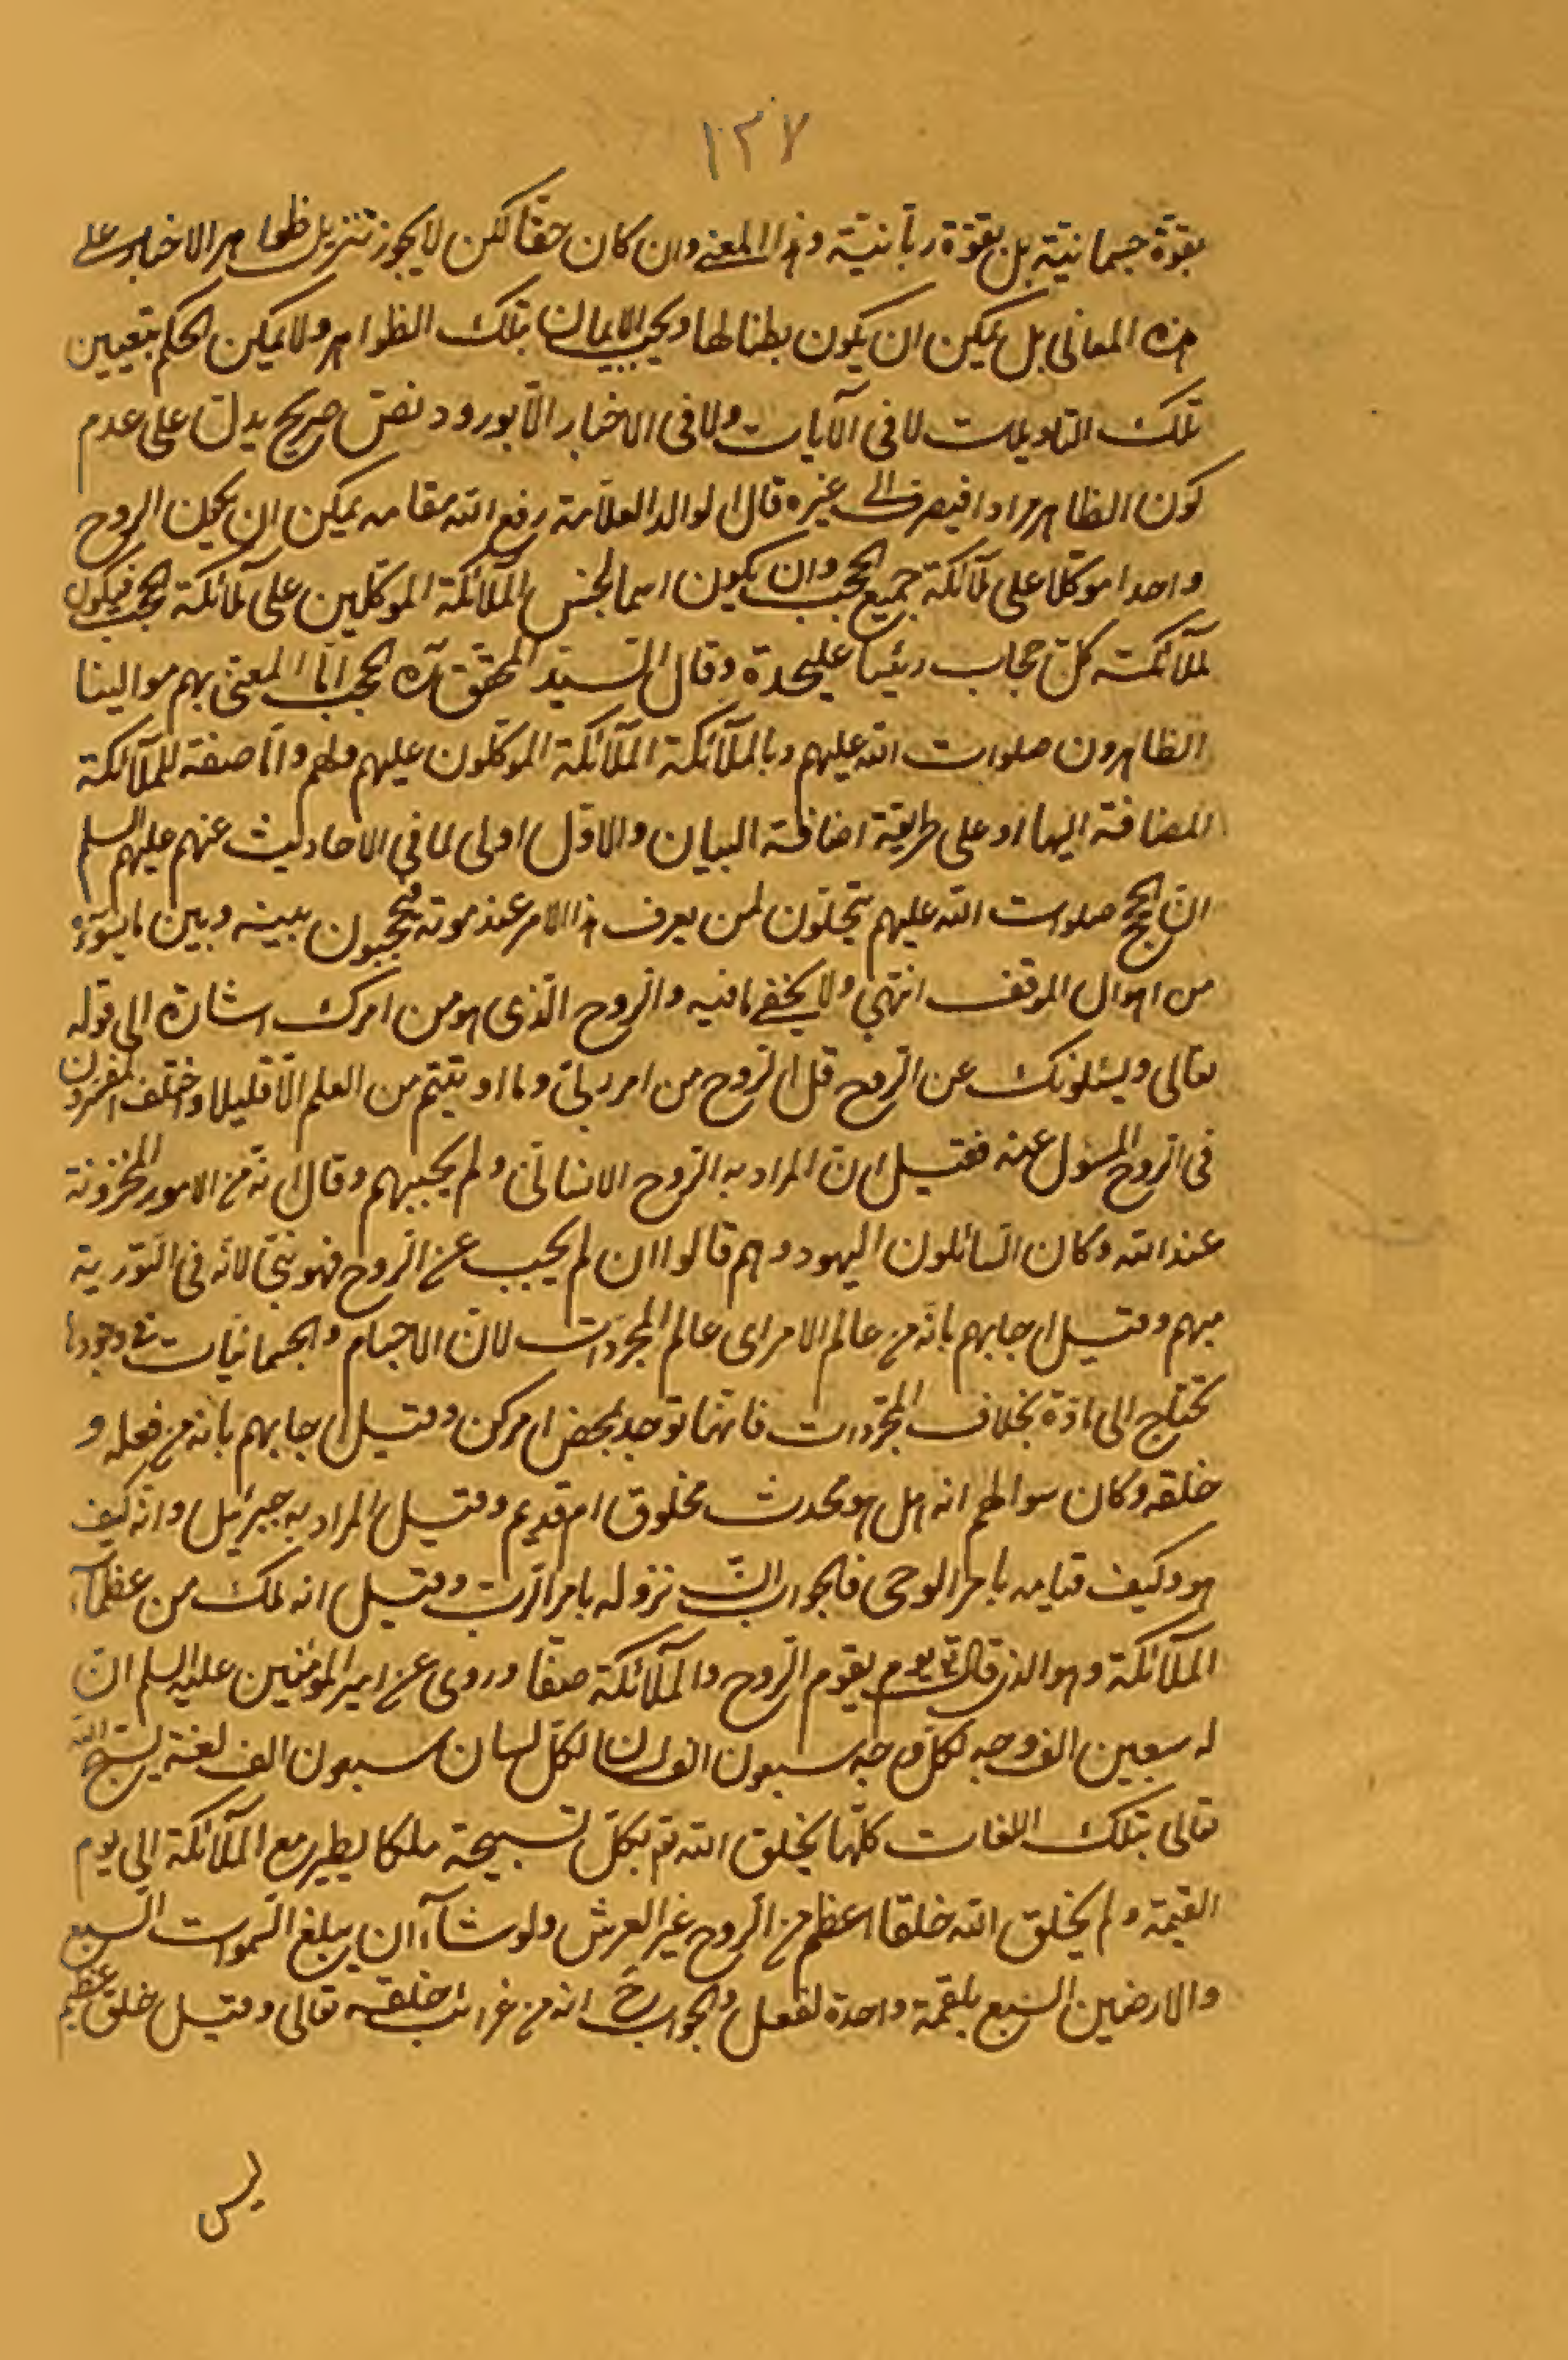 ١٢٧
بقوة جسمانية بل بقوة ربانية وهذا المعنى وان كان حقا لكن لا يجوز تنزيل ظواهر الاخبار على
هذه المعانى بل يمكن ان يكون بطنا لها ويجب الايمان بتلك الظواهر ولا يمكن الحكم بتعيين
تلك التاويلات لا فى الآيات ولا فى الاخبار الا بورود نص صريح يدل على عدم
كون الظاهر مرادا فيصرف الى غيره قال الوالد العلامة رفع الله مقامه يمكن ان يكون الروح
واحدا موكلا على ملائكة جميع الحجب وان يكون اسما لجنس الملائكة الموكلين على ملائكة الحجب فيكون
لملائكة كل حجاب رئيسا عليحدة وقال السيد المحقق ره الحجب اما المعنى بهم موالينا
الطاهرون صلوات الله عليهم وبالملائكة الملائكة الموكلون عليهم ولهم واما صفة للملائكة
المضافة اليها او على طريقة اضافة البيان والاول اولى لما في الاحاديث عنهم عليهم السلم
ان الحجج صلوات الله عليهم يتجلون لمن يعرف هذا الامر عند موته فيحجبون بينه وبين ما يسوؤه
من اهوال الموقف انتهى ولا يخفى ما فيه والروح الذى هو من امرك اشارة الى قوله
تعالى ويسئلونك عن الروح قل الروح من امر ربى وما اوتيتم من العلم الا قليلا واختلف المفسرون
فى الروح المسؤل عنه فقيل ان المراد به الروح الانسانى ولم يجبهم وقال انه من الامور المخزونة
عند الله وكان السائلون اليهود وهم قالوا ان لم يجب عن الروح فهو نبى لانه فى التورية
مبهم وقيل اجابهم بانه من عالم الامر اى عالم المجردات لان الاجسام والجسمانيات فى وجودها
تحتاج الى مادة بخلاف المجردات فانها توجد بمحض امر كن وقيل اجابهم بانه من فعله و
خلقه وكان سوالهم انه هل هو محدث مخلوق ام قديم وقيل المراد به جبرئيل وانه كيف
هو وكيف قيامه بامر الوحى فالجواب ان نزوله بامر الرب وقيل انه ملك من عظماء
الملائكة وهو الذى قال تع يوم يقوم الروح والملائكة صفا وروى عن امير المؤمنين عليه السلم ان
له سبعين الف وجه لكل وجه سبعون الف لسان لكل لسان سبعون الف لغة يسبح الله
تعالى بتلك اللغات كلها يخلق الله تع بكل تسبيحة ملكا يطير مع الملائكة الى يوم
القيمة ولم يخلق الله خلقا اعظم من الروح غير العرش ولو شاء ان يبلغ السموات السبع
والارضين السبع بلقمة واحدة لفعل والجواب ح انه من غرائب خلقه تعالى وقيل خلق عظيم
ليس